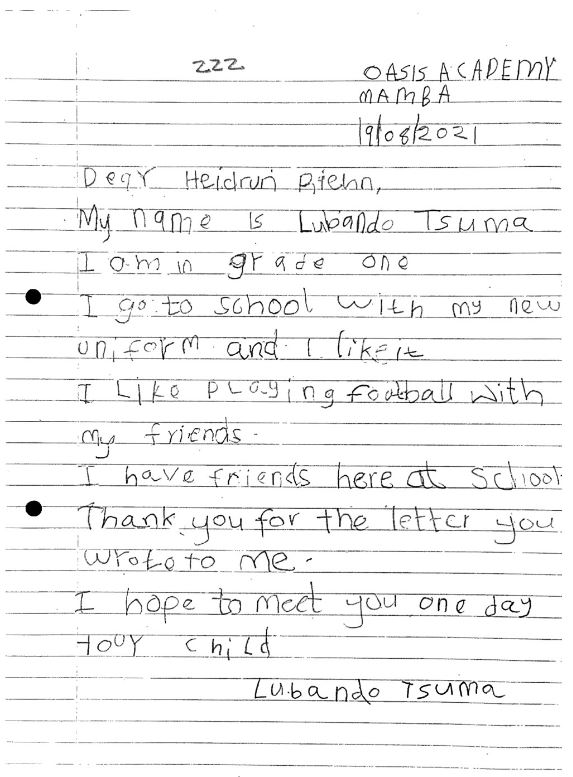 222
OASIS ACADEMY
MAMBA
19/08/2021
Dear Heidrun Riehn,
My name is Lubando Tsuma
I am in grade one
I go to school with my new
uniform and I like it
I Like playing football with
my friends.
I have friends here at school
Thank you for the letter you
wrote to me.
I hope to meet you one day
your child
Lubando Tsuma